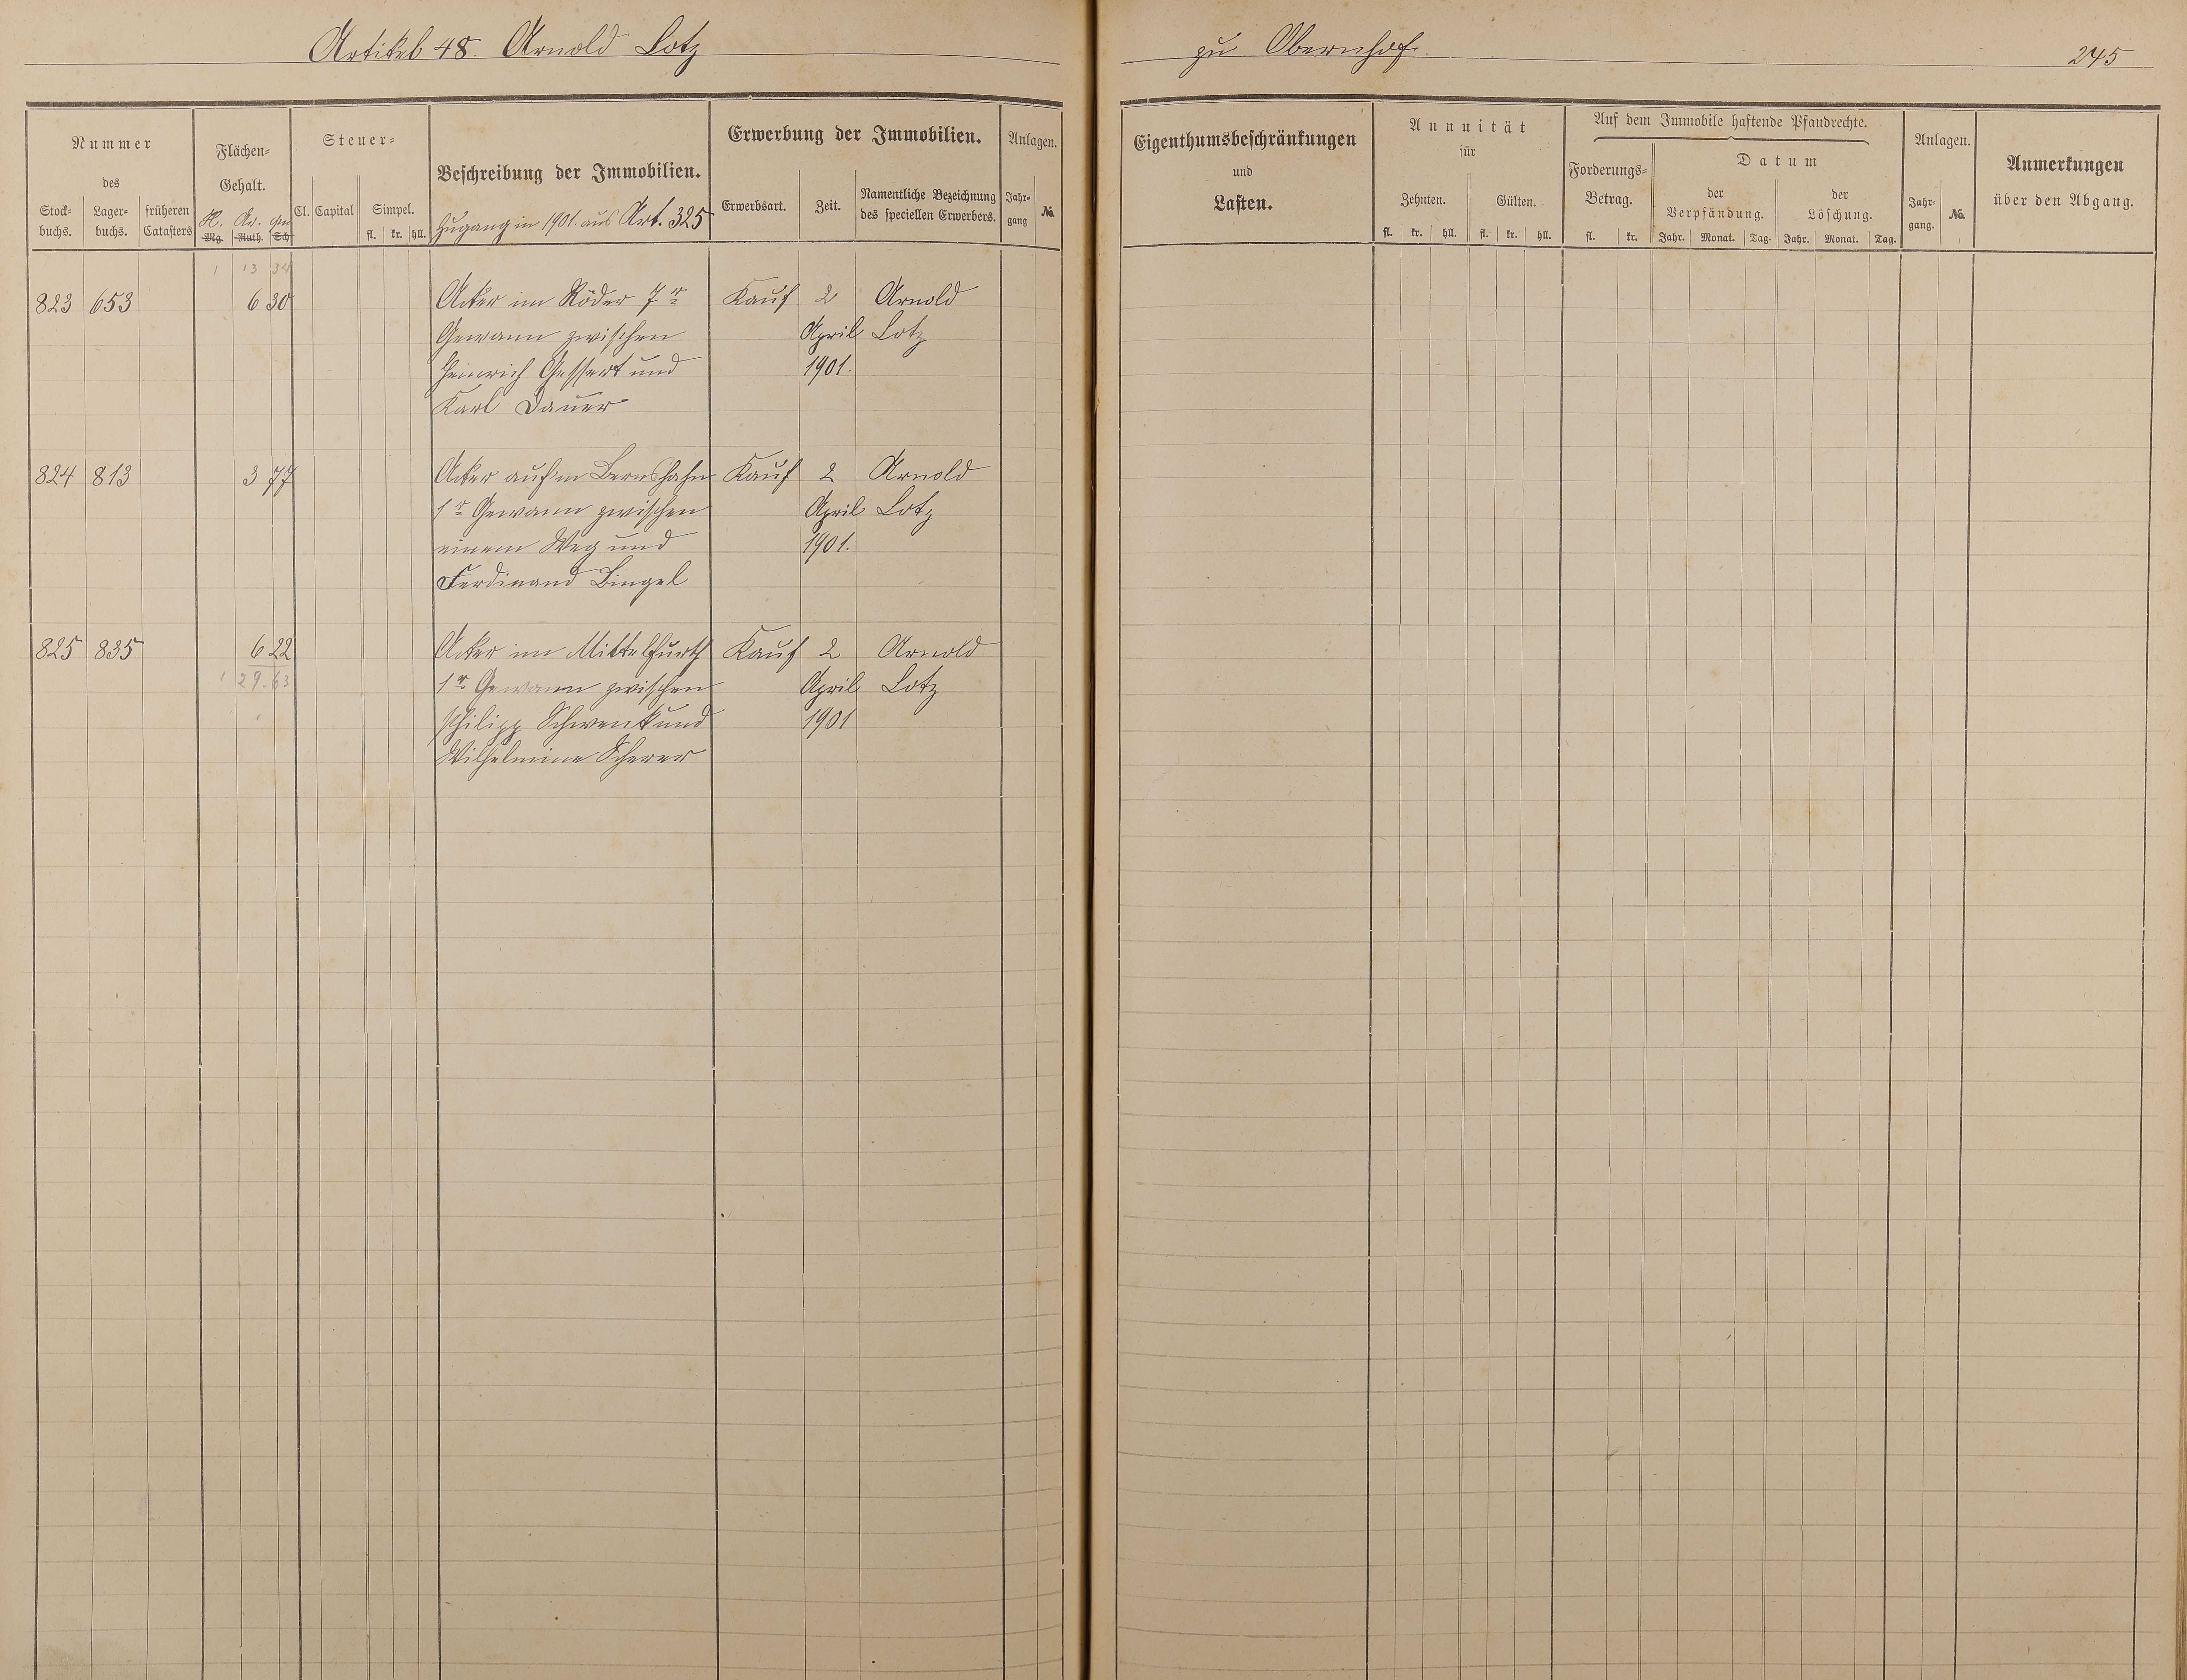 Artikel 48. Arnold Lotz
zu Obernhof.
245
Nummer
des
Stock-
buchs.
Lager-
buchs.
früheren
Catasters
Flächen-
Gehalt.
H. Ar. qm
Mg. Ruth. Sch
Steuer-
Cl. Capital Simpel.
fl. kr. hll.
Beschreibung der Immobilien.
Zugang in 1901. aus Art. 325
Erwerbung der Immobilien.
Erwerbsart. Zeit.
Namentliche Bezeichnung
des speciellen Erwerbers.
Anlagen.
Jahr-
gang
No.
Eigenthumsbeschränkungen
und
Lasten.
Annuität
für
Zehnten. Gülten.
fl. kr. hll. fl. kr. hll.
Auf dem Immobile haftende Pfandrechte.
Forderungs-
Betrag.
fl. kr.
Datum
der
Verpfändung.
der
Löschung.
Jahr. Monat. Tag. Jahr. Monat. Tag.
Anlagen.
Jahr-
gang.
No.
Anmerkungen
über den Abgang.
1 13 34
823 653 6 30 Acker im Röder 7r Kauf 2 Arnold
Gewann zwischen April Lotz
Heinrich Gessert und 1901.
Karl Dauer
824 813 3 77 Acker auf'm Bernshahn Kauf 2 Arnold
1r Gewann zwischen April Lotz
einem Weg und 1901.
Ferdinand Bingel
825 835 6 22 Acker im Mittelfurth Kauf 2 Arnold
1 29.63 1r Gewann zwischen April Lotz
Philipp Schwenk und 1901
Wilhelmine Scherer